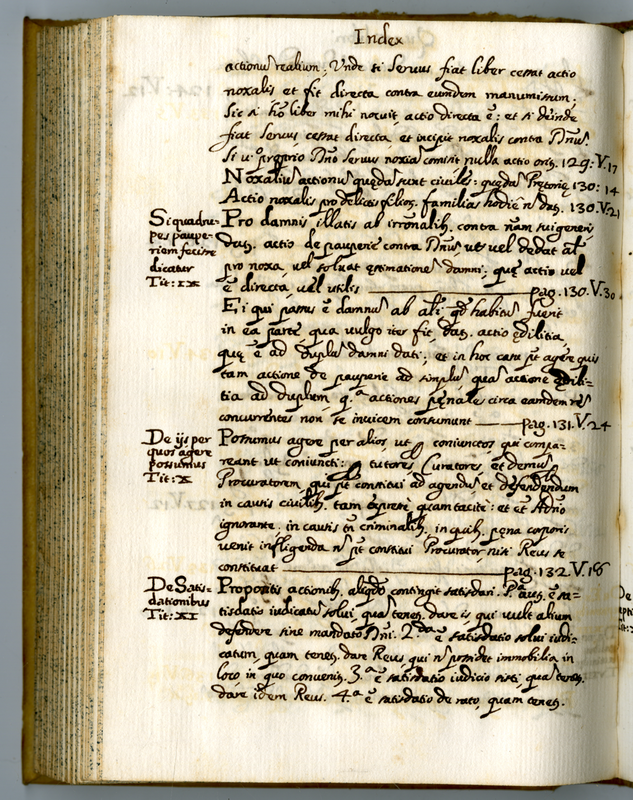 Index
actionũ realium; Unde si Servus fiat liber cessat actio
noxalis et fit directa contra eumdem manumissum;
Sic si hõ liber mihi nocuit, actio directa ẽ: et si deinde
fiat Servus cessat directa, et incipit noxalis contra Dñum.
Si v.º proprio Dño Servus noxiã comisit nulla actio orit. 129. V. 17
Noxaliũ actionũ quędã sunt civiles: quędã Pretorię 130: 14
Actio noxalis pro delictis filior. familias hodie ñ dat. 130. V. 21
Si quadru-
pes paupe-
riem fecisse
dicatur
Tit: IX
Pro damnis illatis ab irronalib. contra ñam sui generis
dat. actio de pauperie contra Dñũ, ut vel dedat al
pro noxa, vel solvat estimationẽ damni; quę actio vel
ẽ directa, vel utilis pag. 130. V. 30
Ei qui passus ẽ damnũ ab ali qd habitũ fuerit
in ea parte, qua vulgo iter fit, dat. actio ędilitia,
quę ẽ ad duplũ damni dati; et in hoc casu pt agere quis
tam actione de pauperie ad simplũ, quã actione ędili-
tia ad duplum, q.ª actiones pęnales circa eamdem rẽ
concurrentes non se invicem consumunt pag. 131. V. 24
De ijs per
quos agere
possumus
Tit: X
Possumus agere per alios, ut coniunctos, qui compa-
reant ut coniuncti: tutores, Curatores, et demũ
Procuratorem, qui pt constitui ad agendũ et defendendum
in causis civilib. tam expresse quam tacitè: et et Adño
ignorante. in causis tñ criminalib. in quib. pęna corporis
venit infligenda ñ pt constitui Procurator, nisi Reus se
constituat pag. 132. V. 18
De Satis-
dationibus
Tit: XI
Propositis actionib. aliqdo contingit satisdari. Pª aut. ẽ sa-
tisdatio iudicatũ solui, quã tenet. dare is qui vult alium
defendere sine mandato Dñi. 2.da ẽ satisdatio solui iudi-
catum, quam tenet. dare Reus qui ñ possidet immobilia in
loco in quo convenit. 3.ª ẽ satisdatio iudicio sisti, quã tenet.
dare idem Reus. 4.ª ẽ satisdatio de rato, quam tenet.